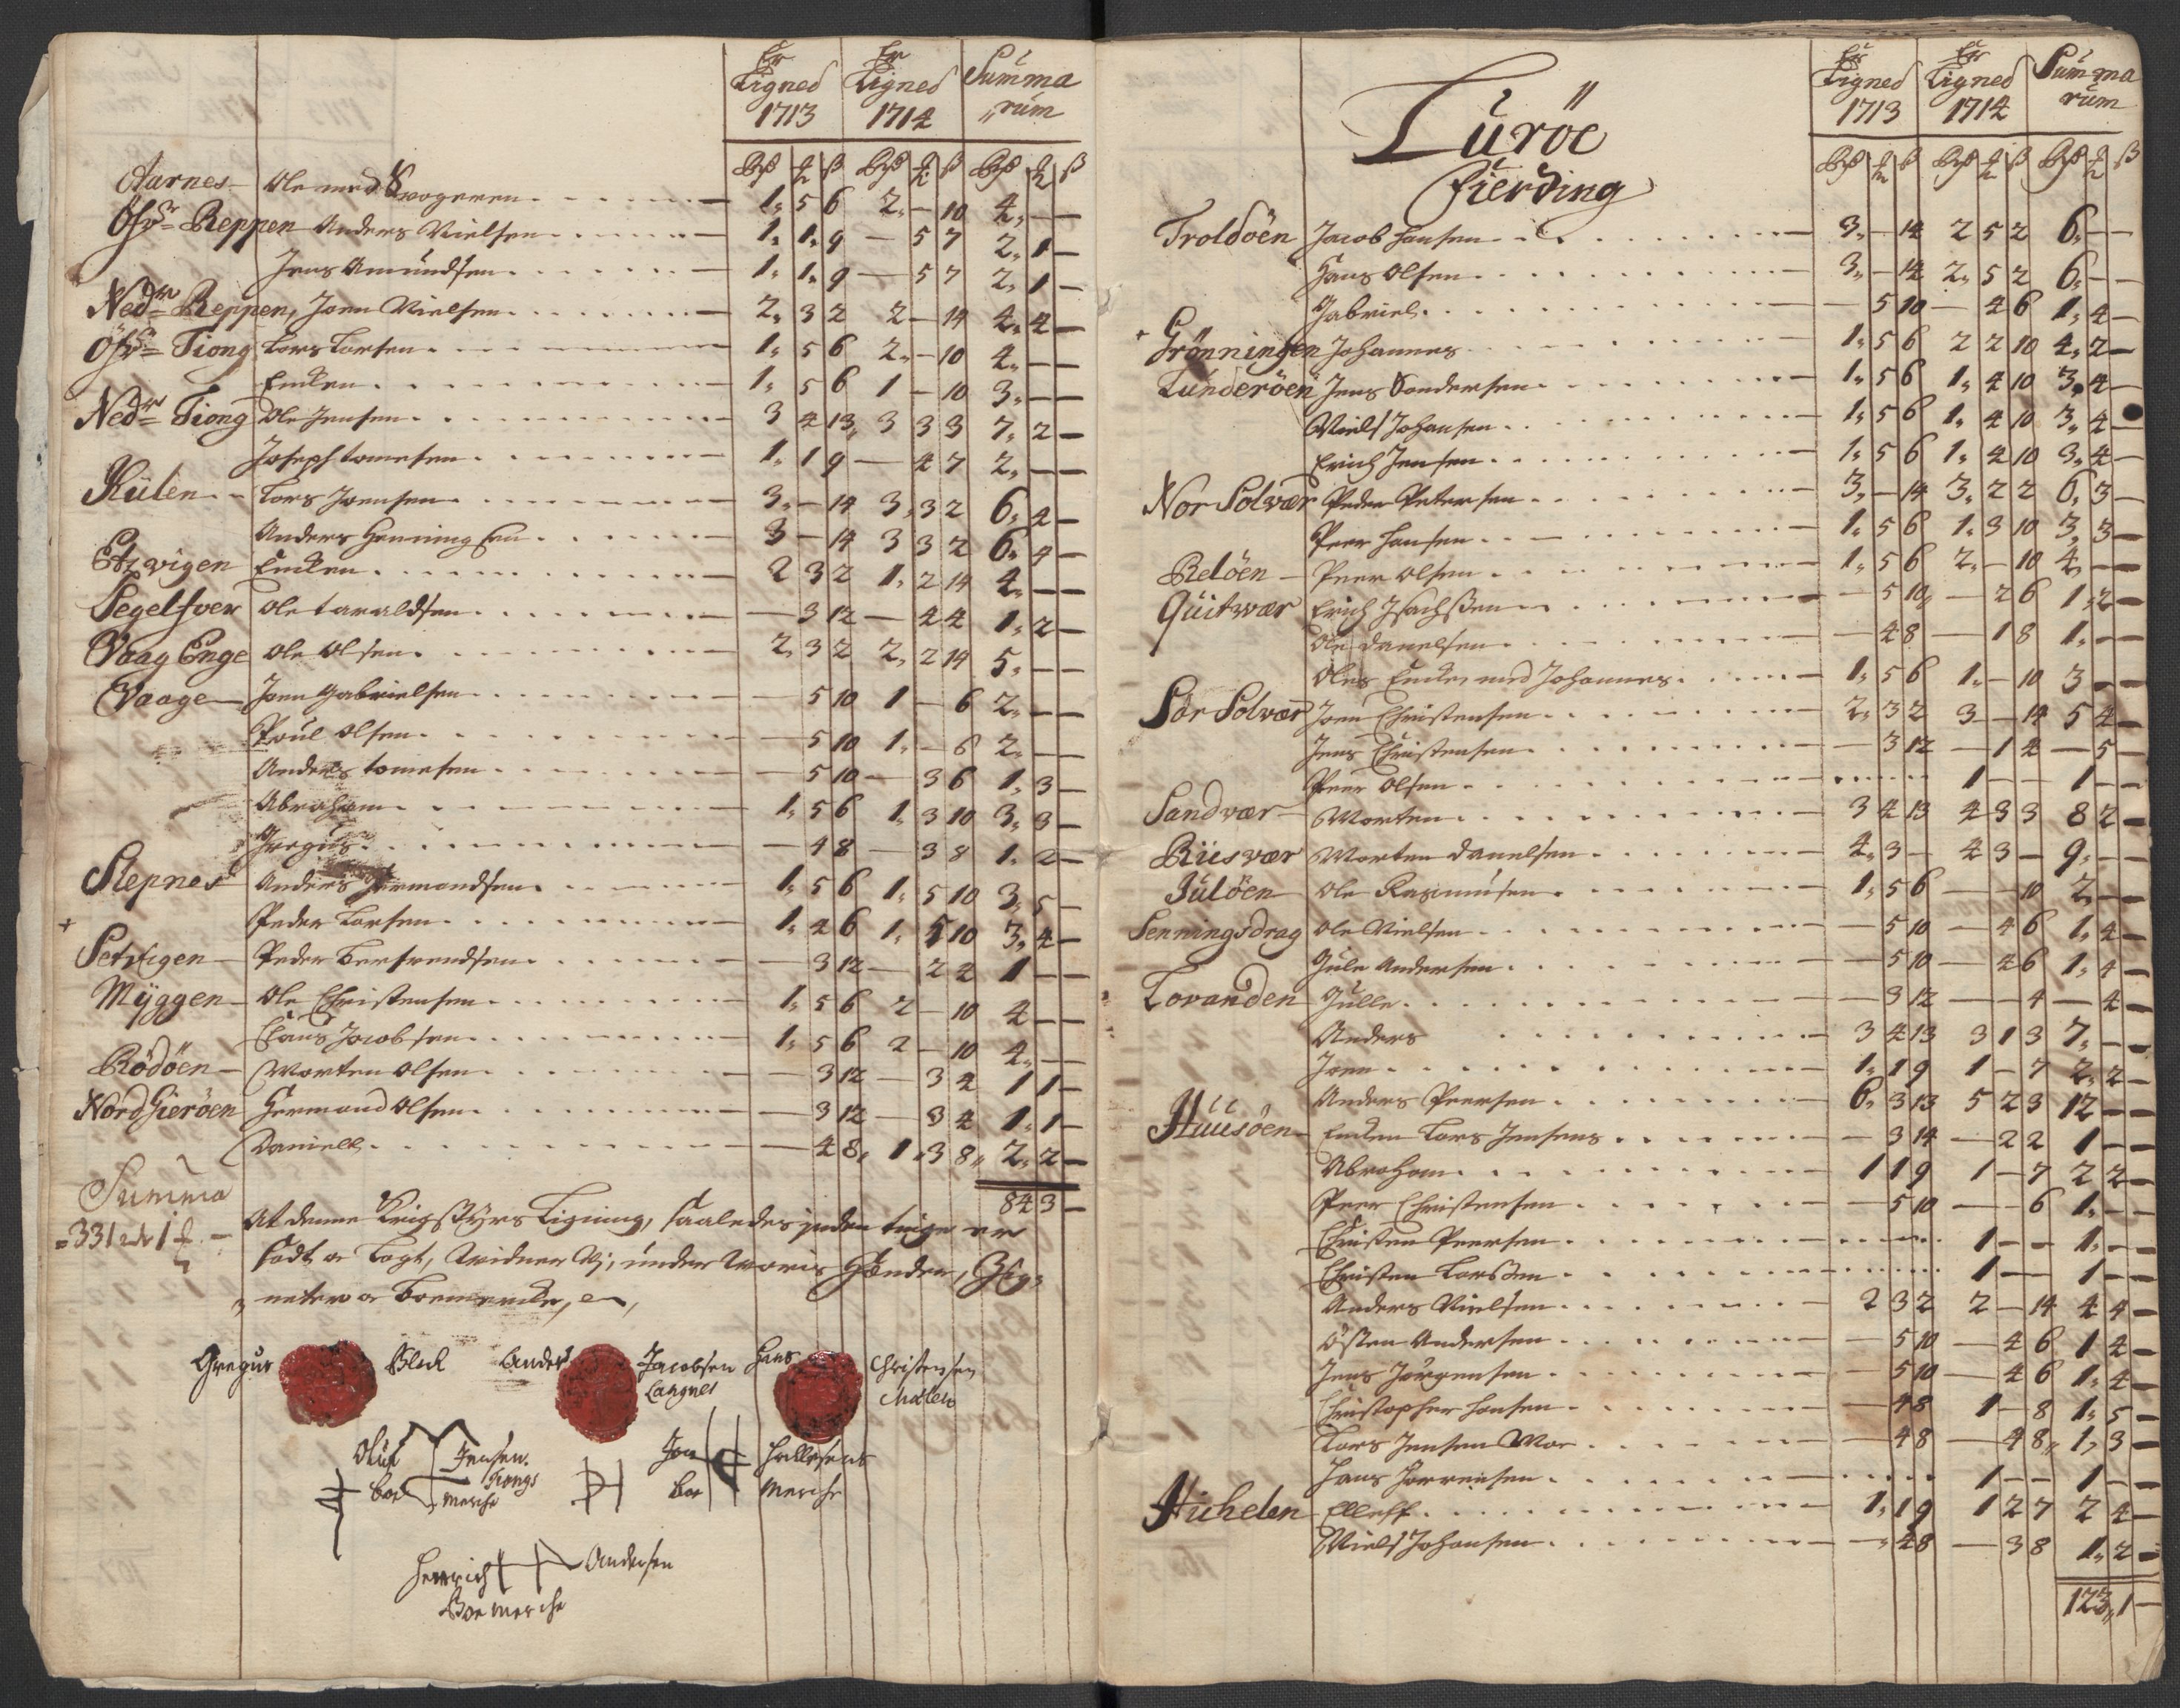 Er Ligned 1713 Er Ligned 1714 Summa rüm
Aarnes Ole med Svogeren 1 5 6 2 – 10 4 – –
Öfvr Reppen Anders Nielsen 1 1 9 – 5 7 2 1 –
Jens Amündsen 1 1 9 – 5 7 2 1 –
Nedr Reppen, Joen Nielsen 2 3 2 2 – 14 4 4 –
Öfvr Tiong Lars Larsen 1 5 6 2 – 10 4 – –
Encken 1 5 6 1 – 10 3 – –
Nedr Tiong Ole Jensen 3 4 13 3 3 3 7 2 –
Joseph tomesen 1 1 9 – 4 7 2 – –
Külen Lars Joensen 3 – 14 3 3 2 6 4 –
Anders Henningsen 3 – 14 3 3 2 6 4 –
Etzvigen Encken 2 3 2 1 2 14 4 – –
Segelfver Ole taraldsen – 3 12 – 4 4 1 2 –
Vaag Enge Ole Olsen 2 3 2 2 2 14 5 – –
Vaage Joen Gabrielsen – 5 10 1 – 6 2 – –
Poül Olsen – 5 10 1 – 6 2 – –
Anders tomesen – 5 10 – 3 6 1 3 –
Abraham 1 5 6 1 3 10 3 3 –
Gregüs – 4 8 – 3 8 1 2 –
Slepnes Anders Hermandsen 1 5 6 1 5 10 3 5 –
Peder Larsen 1 4 6 1 5 10 3 4 –
Setvigen Peder Bertrendsen – 3 12 – 2 4 1 – –
Mÿggen Ole Christensen 1 5 6 2 – 10 4 – –
Claus Jacobsen 1 5 6 2 – 10 4 – –
Rödöen Morten Olsen – 3 12 – 3 4 1 1 –
Nord Gieröen Hermand Olsen – 3 12 – 3 4 1 1 –
Daniell – 4 8 1 3 8 2 2 –
84 3 –
Summa
331 1
At denne Krigstÿrs Ligning, saaledes paa tinge er
sadt og Lagt, Vidner Vj, under Voris Hænder, Sig-
neter og Boemercke,
Gregus Blick Anders Jacobsen Langnes Hans Christensen
Oluf Jensen Tiongs
boe merche
Jon Hallesens
boe merche
Henrich Andersen
Boe merche
Luröe
Fierding
Er Ligned 1713 Er Ligned 1714 Summa rüm
Troldöen Jacob Hansen 3 – 14 2 5 2 6 – –
Hans Olsen 3 – 14 2 5 2 6 – –
Gabriel – 5 10 – 4 6 1 4 –
Grönningen Johannes 1 5 6 2 2 10 4 2 –
Lünderöen Jens Sandersen 1 5 6 1 4 10 3 4 –
Niels Johansen 1 5 6 1 4 10 3 4 –
Erich Jensen 1 5 6 1 4 10 3 4 –
Nor Solvær Peder Petersen 3 – 14 3 2 2 6 3 –
Peer Hansen 1 5 6 1 3 10 3 3 –
Reløen Peer Olsen 1 5 6 2 – 10 4 – –
Qüitvær Erich Isachsen – 5 10 – 2 6 1 2 –
Ole Danelsen – 4 8 – 1 8 1 – –
Oles Encke med Johannes 1 5 6 1 – 10 3 – –
Sör Solvær Joen Christensen 2 3 2 3 – 14 5 4 –
Jens Christensen – 3 12 – 1 4 – 5 –
Peer Olsen 1 – – 1 – –
Sandvær Morten 3 4 13 4 3 3 8 2 –
Riisvær Morten Danelsen 4 3 – 4 3 – 9 – –
Jülöen Ole Rasmüsen 1 5 6 – – 10 2 – –
Senningsdrag Ole Nielsen – 5 10 – 4 6 1 4 –
Güle Andersen – 5 10 – 4 6 1 4 –
Lovanden Jülle – 3 12 – – 4 – 4 –
Anders 3 4 13 3 1 3 7 – –
Joen 1 1 9 1 – 7 2 2 –
Anders Peersen 6 3 13 5 2 3 12 – –
Hüüsöen Encken Lars Jensens – 3 14 – 2 2 1 – –
Abraham 1 1 9 1 – 7 2 2 –
Peer Christensen – 5 10 – – 6 1 – –
Christen Peersen 1 – – 1 – –
Christen Larsen 1 – – 1 – –
Anders Nielsen 2 3 2 2 – 14 4 4 –
Østen Andersen – 5 10 – 4 6 1 4 –
Jens Jörgensen – 5 10 – 4 6 1 4 –
Christopher Hansen – 4 8 1 – 8 1 5 –
Lars Jensen Moe – 4 8 – 4 8 1 3 –
Hans 1 – – 1 – –
Hichelen Elleff 1 1 9 1 2 7 2 4 –
Niels Johansen – 4 8 – 3 8 1 2 –
123 1 –